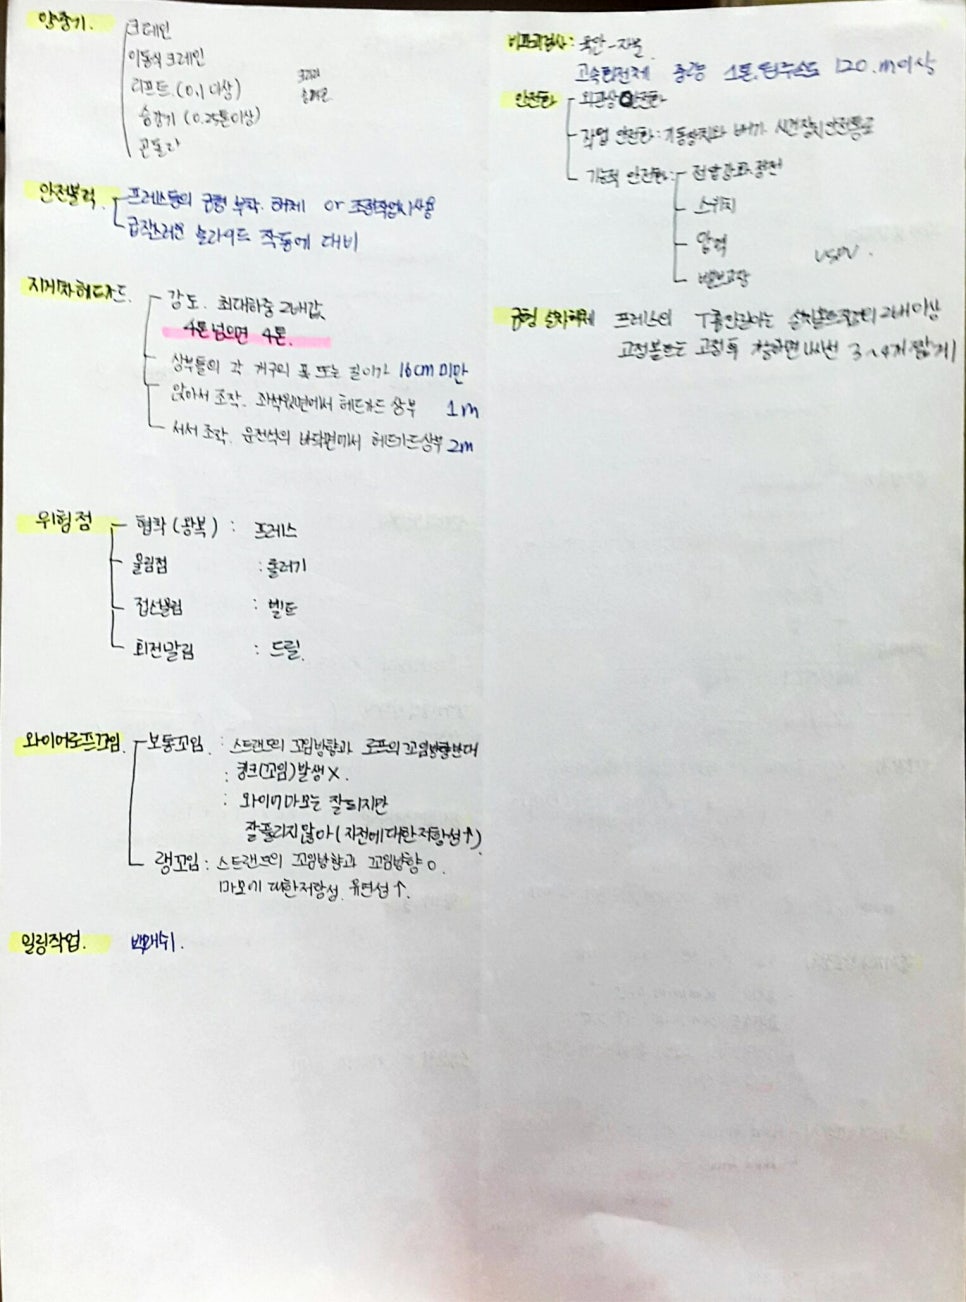 양중기.
크레인
이동식 크레인
리프트. (0.1 이상)
승강기 (0.25톤이상)
곤돌라
안전블럭
프레스등의 금형 부착. 해제 or 조정작업시 사용
급작스러운 슬라이드 작동에 대비
지게차 헤드가드.
강도. 최대하중 2배값
4톤 넘으면 4톤.
상부틀의 각 개구의 폭 또는 길이가 16cm 미만
앉아서 조작. 좌석윗면에서 헤드가드 상부 1m
서서 조작. 운전석의 바닥면에서 헤드가드상부 2m
위험점
협착 (왕복) : 프레스
물림점 : 롤러기
접선물림 : 벨트
회전말림 : 드릴.
와이어로프꼬임.
보통꼬임 : 스트랜드의 꼬임방향과 로프의 꼬임방향반대
: 킹크(꼬임)발생 X.
: 와이어마모는 잘되지만
잘풀리지않아 (자전에대한 저항성↑)
랭꼬임 : 스트랜드의 꼬임방향과 꼬임방향 o.
마모에 대한저항성. 유연성↑.
밀링작업. 백래쉬.
비파괴검사: 육안-자분
고속회전체 중량 1톤. 원주속도 120.m이상
안전화
외관상 안전화
작업 안전화: 기동장치와 배기. 시건장치 안전통로
기능적 안전화:
전압강하.정전
스위치
압력
밸브고장
USDV.
금형 설치해체 프레스의 T홈안길이는 설치볼트직경의 2배이상
고정볼트는 고정 후 3~4개 짧게